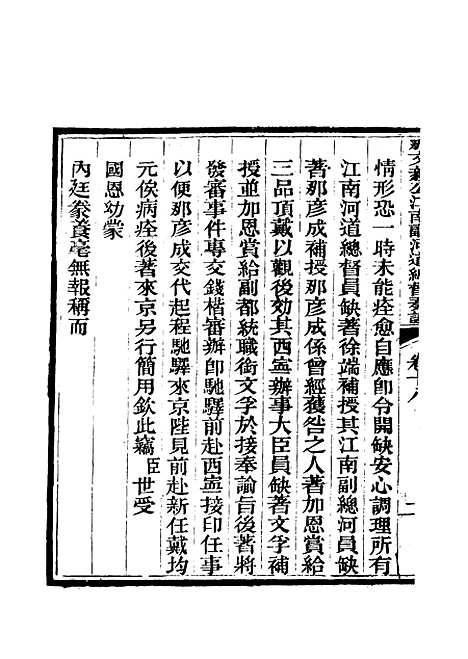 那文毅公江南副河道總督奏議 卷十八 二
情形恐一時未能痊愈自應即令開缺安心調理所有
江南河道總督員缺著徐端補授其江南副總河員缺
著那彥成補授那彥成係曾經獲咎之人著加恩賞給
三品頂戴以觀後効其西寧辦事大臣員缺著文孚補
授並加恩賞給副都統職銜文孚於接奉諭旨後著將
發審事件專交錢楷審辦即馳驛前赴西寧接印任事
以便那彥成交代起程馳驛來京陛見前赴新任戴均
元俟病痊後著來京另行簡用欽此竊臣世受
國恩幼蒙
內廷豢養毫無報稱而